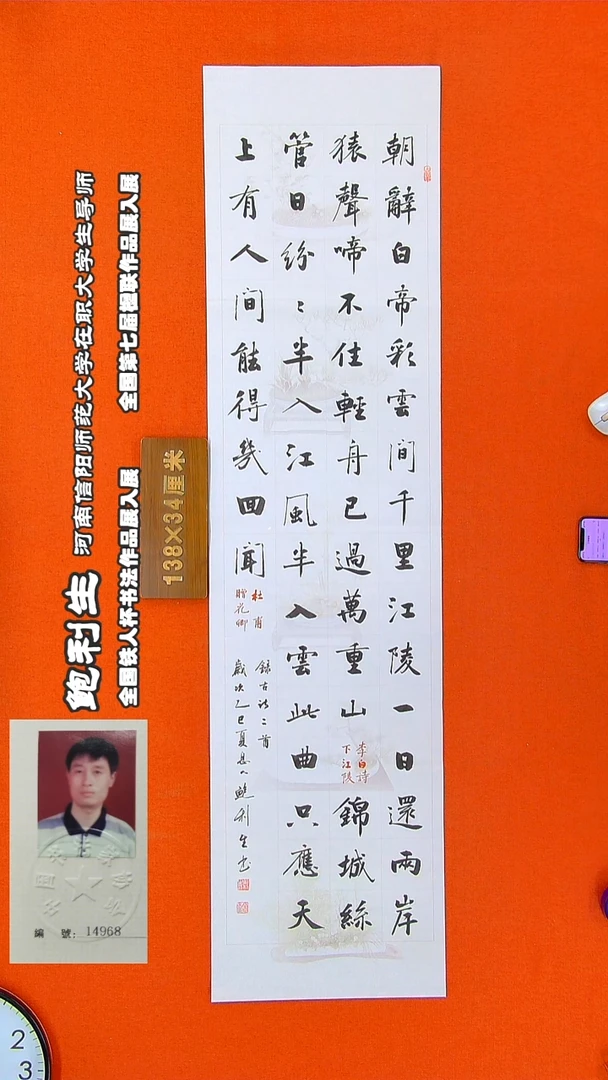 朝辭白帝彩雲間千里江陵一日還兩岸
猿聲啼不住輕舟已過萬重山
李白詩
下江陵
錦城絲
管日紛〻半入江風半入雲此曲只應天
上有人間能得幾回聞
杜甫
贈花卿
錄古詩二首
歲次乙巳夏 鮑利生書
138×34厘米
鲍利生 河南信阳师范大学在职大学生导师
全国铁人杯书法作品展入展 全国第七届楹联作品展入展
編 號：14968
2
3